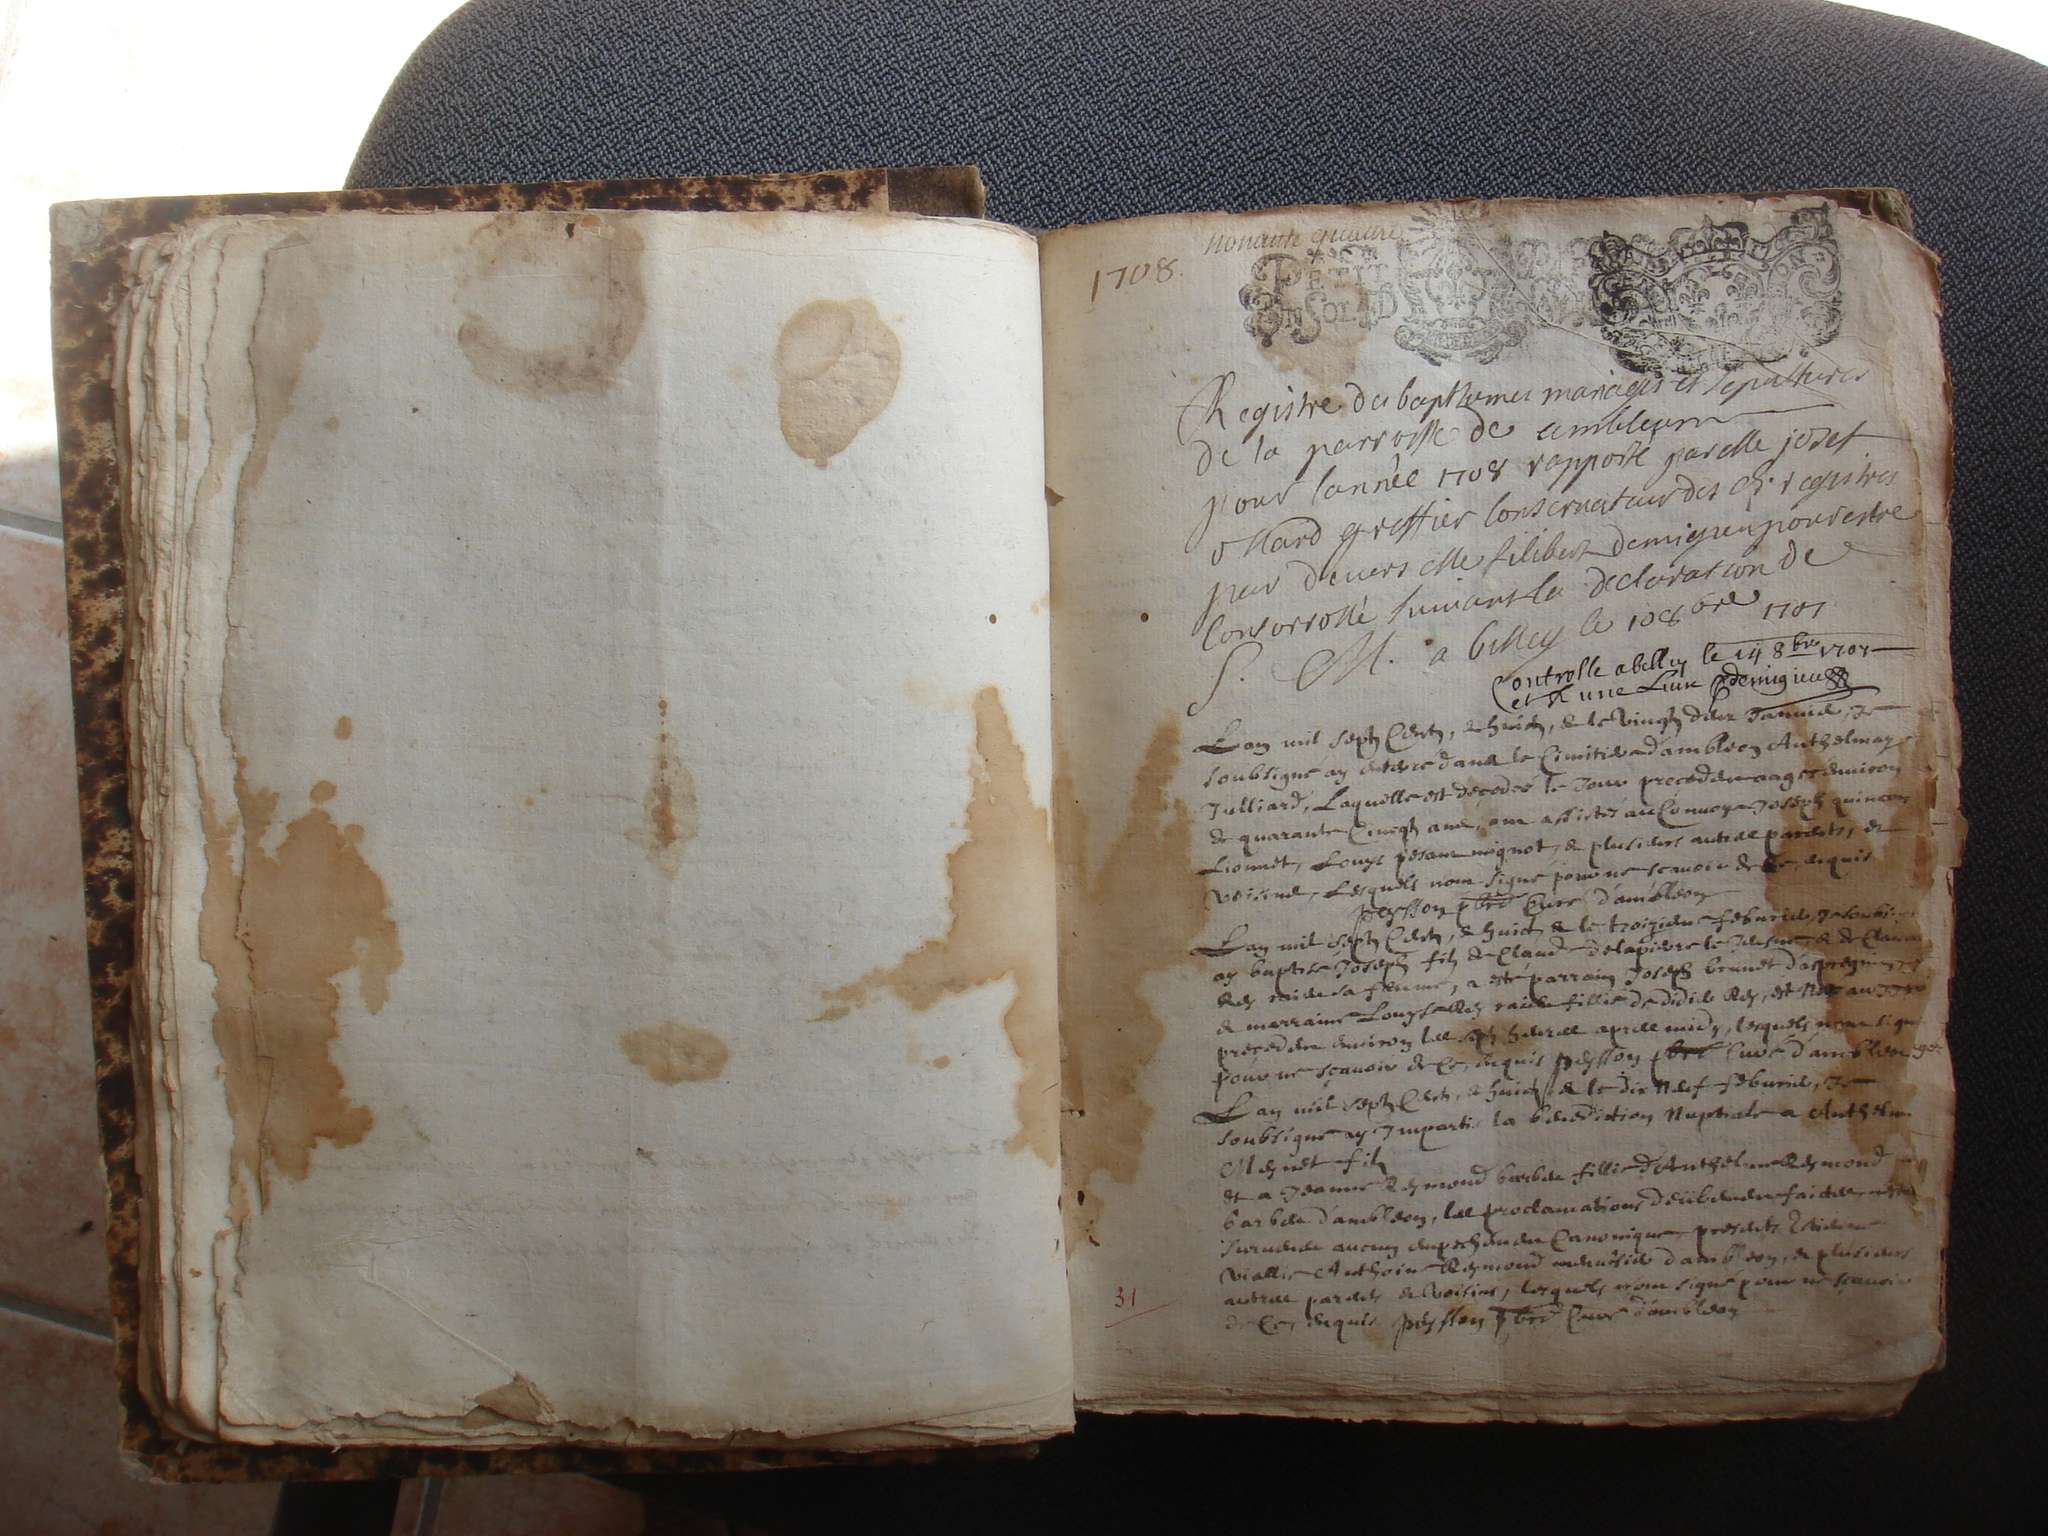 1708.
nonante quattre
PETIT
SOLD
Registre des baptemes mariages et sepultures
de la parroisse de ambleon
pour lannée 1708 rapporté par Me josef
ollard greffier conservateur des d. registres
par devers Me filibert demigieu pour estre
controllé suivant la declaration de
S. M. a belley le 10 8bre 1707
Controlle a belley le 14 8bre 1707
et R une Livre demigieu
Lan mil sept Cent, & huict, & le vingt deux Januier, Je
soubsigné ay enterré dans le Cimitiere d'ambleon Anthelmaz
Julliard, Laquelle est decedeé le Jour precedent aageé denuiron
de quarante Cincq ans, ont assistés au Conuoy Joseph quincon
Lionnet, Louys mignot, & plusieurs autres parents, &
voisins, Lesquels nont signé pour ne scauoir de ce, enquis
peysson pbre Curé d'ambleon
Lan mil sept Cent, & huict & le troizieme feburier, Je soubsigné
ay baptisé Joseph fils de Claude delapierre le Jeusne & de Claudaz
Rey sa femme, a esté parrain Joseph brunet
& marraine Louyse Rey fillie de didier Rey, est Né au Jour
precedent enuiron les sept heures apres midy, lesquels nont signé
pour ne sçauoir de ce, enquis peysson pbre Curé d'ambleon
Lan mil sept Cent, & huict & le dix Neuf feburier, Je
soubsigné ay Imparti la benediction Nuptiale a Anthelme
Meynet fils
et a Jeanne Reymond barbier fillie d'Anthelme Reymond
barbier d'ambleon, les proclamations deüement faictes
aucun empechement Canonique, presents
viallet Anthoine Reymond d'ambleon, & plusieurs
autres parents & voisins, lesquels nont signé pour ne scauoir
de ce, enquis peysson pbre Curé d'ambleon
31